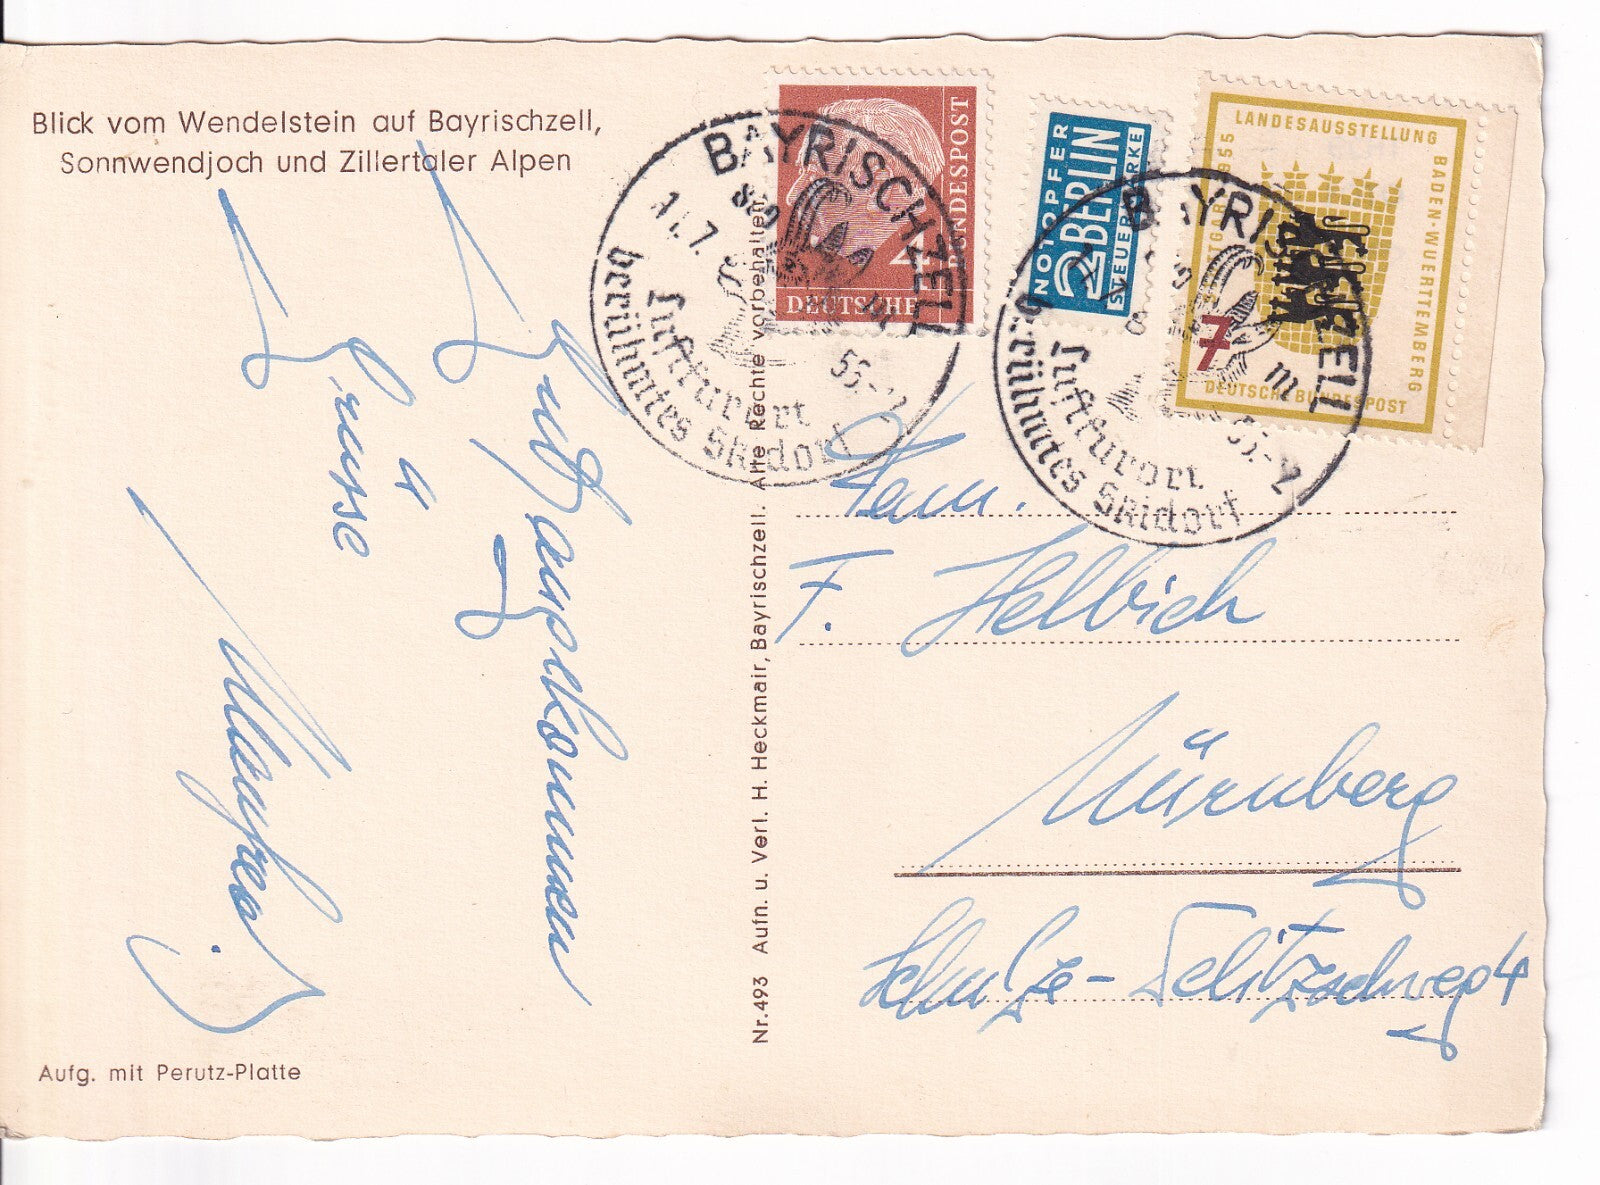 Blick vom Wendelstein auf Bayrischzell,
Sonnwendjoch und Zillertaler Alpen
Gut angekommen
u
Grüsse
Aufg. mit Perutz-Platte
Nr. 493 Aufn. u. Verl. H. Heckmair, Bayrischzell. Alle Rechte vorbehalten.
BAYRISCHZELL
11.7.
55.-
Luftkurort
berühmtes Skidorf
4
DEUTSCHE
BUNDESPOST
NOTOPFER
2 BERLIN
STEUERMARKE
LANDESAUSSTELLUNG
BADEN-WUERTTEMBERG
STUTTGART 1955
7
DEUTSCHE BUNDESPOST
BAYRISCHZELL
55.-
Luftkurort
berühmtes Skidorf
Fam.
F. Helbich
Nürnberg
Schulze-Delitzschweg 4